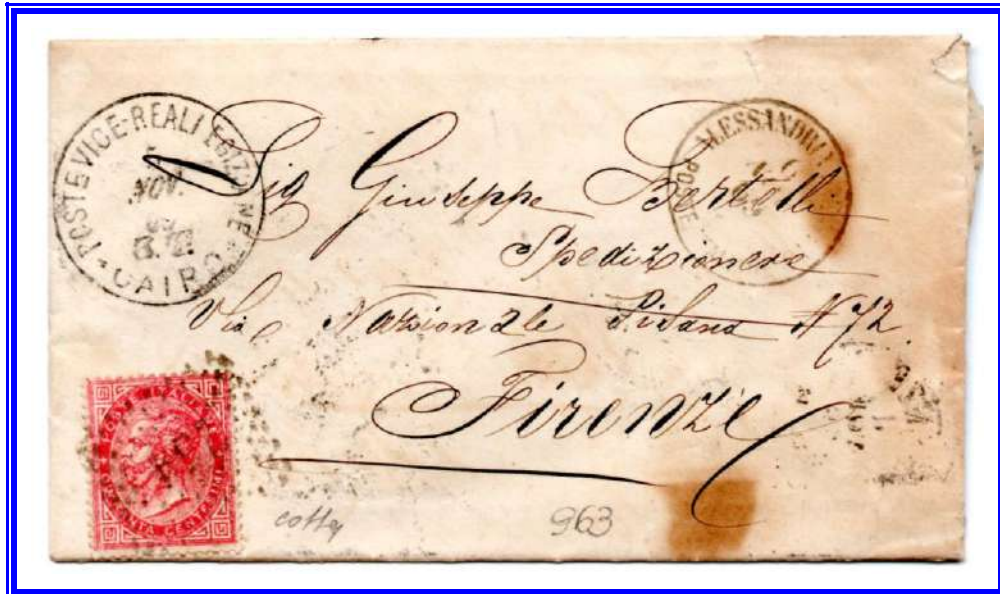 POSTE VICE-REALI EGIZIANE
NOV
CAIRO
ALESSANDRIA
POSTE
Sig Giuseppe Bertelli
Spedizionere
Via Nazionale N 72
Firenze
POSTE ITALIANE
CENTESIMI
963